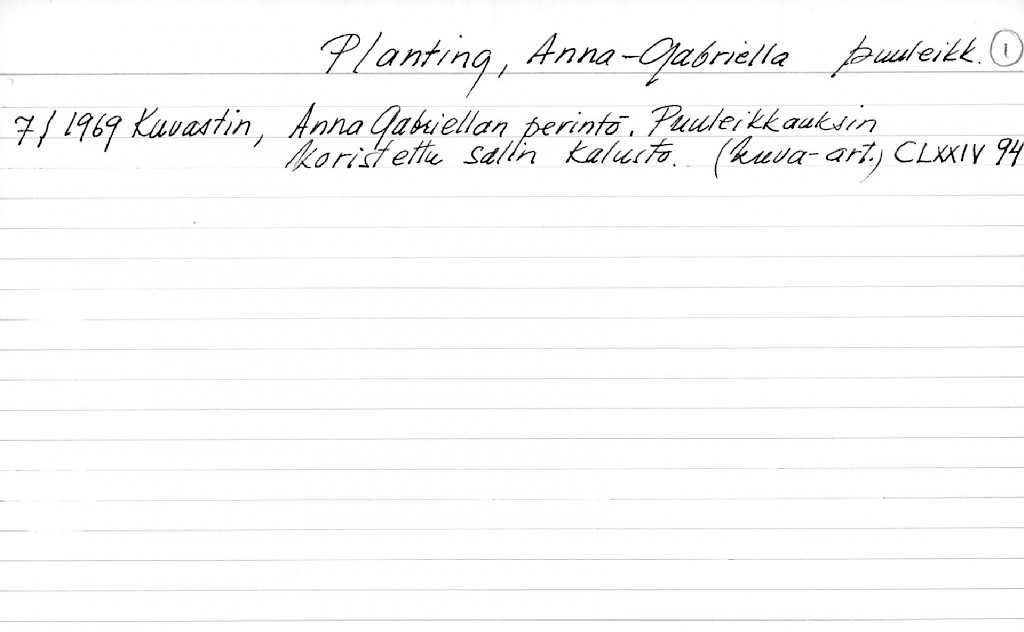 Planting, Anna-Gabriella puuleikk. 1
7/1969 Kuvastin, Anna Gabriellan perintö. Puuleikkauksin
koristettu salin kalusto. (kuva-art.) CLXXIV 94